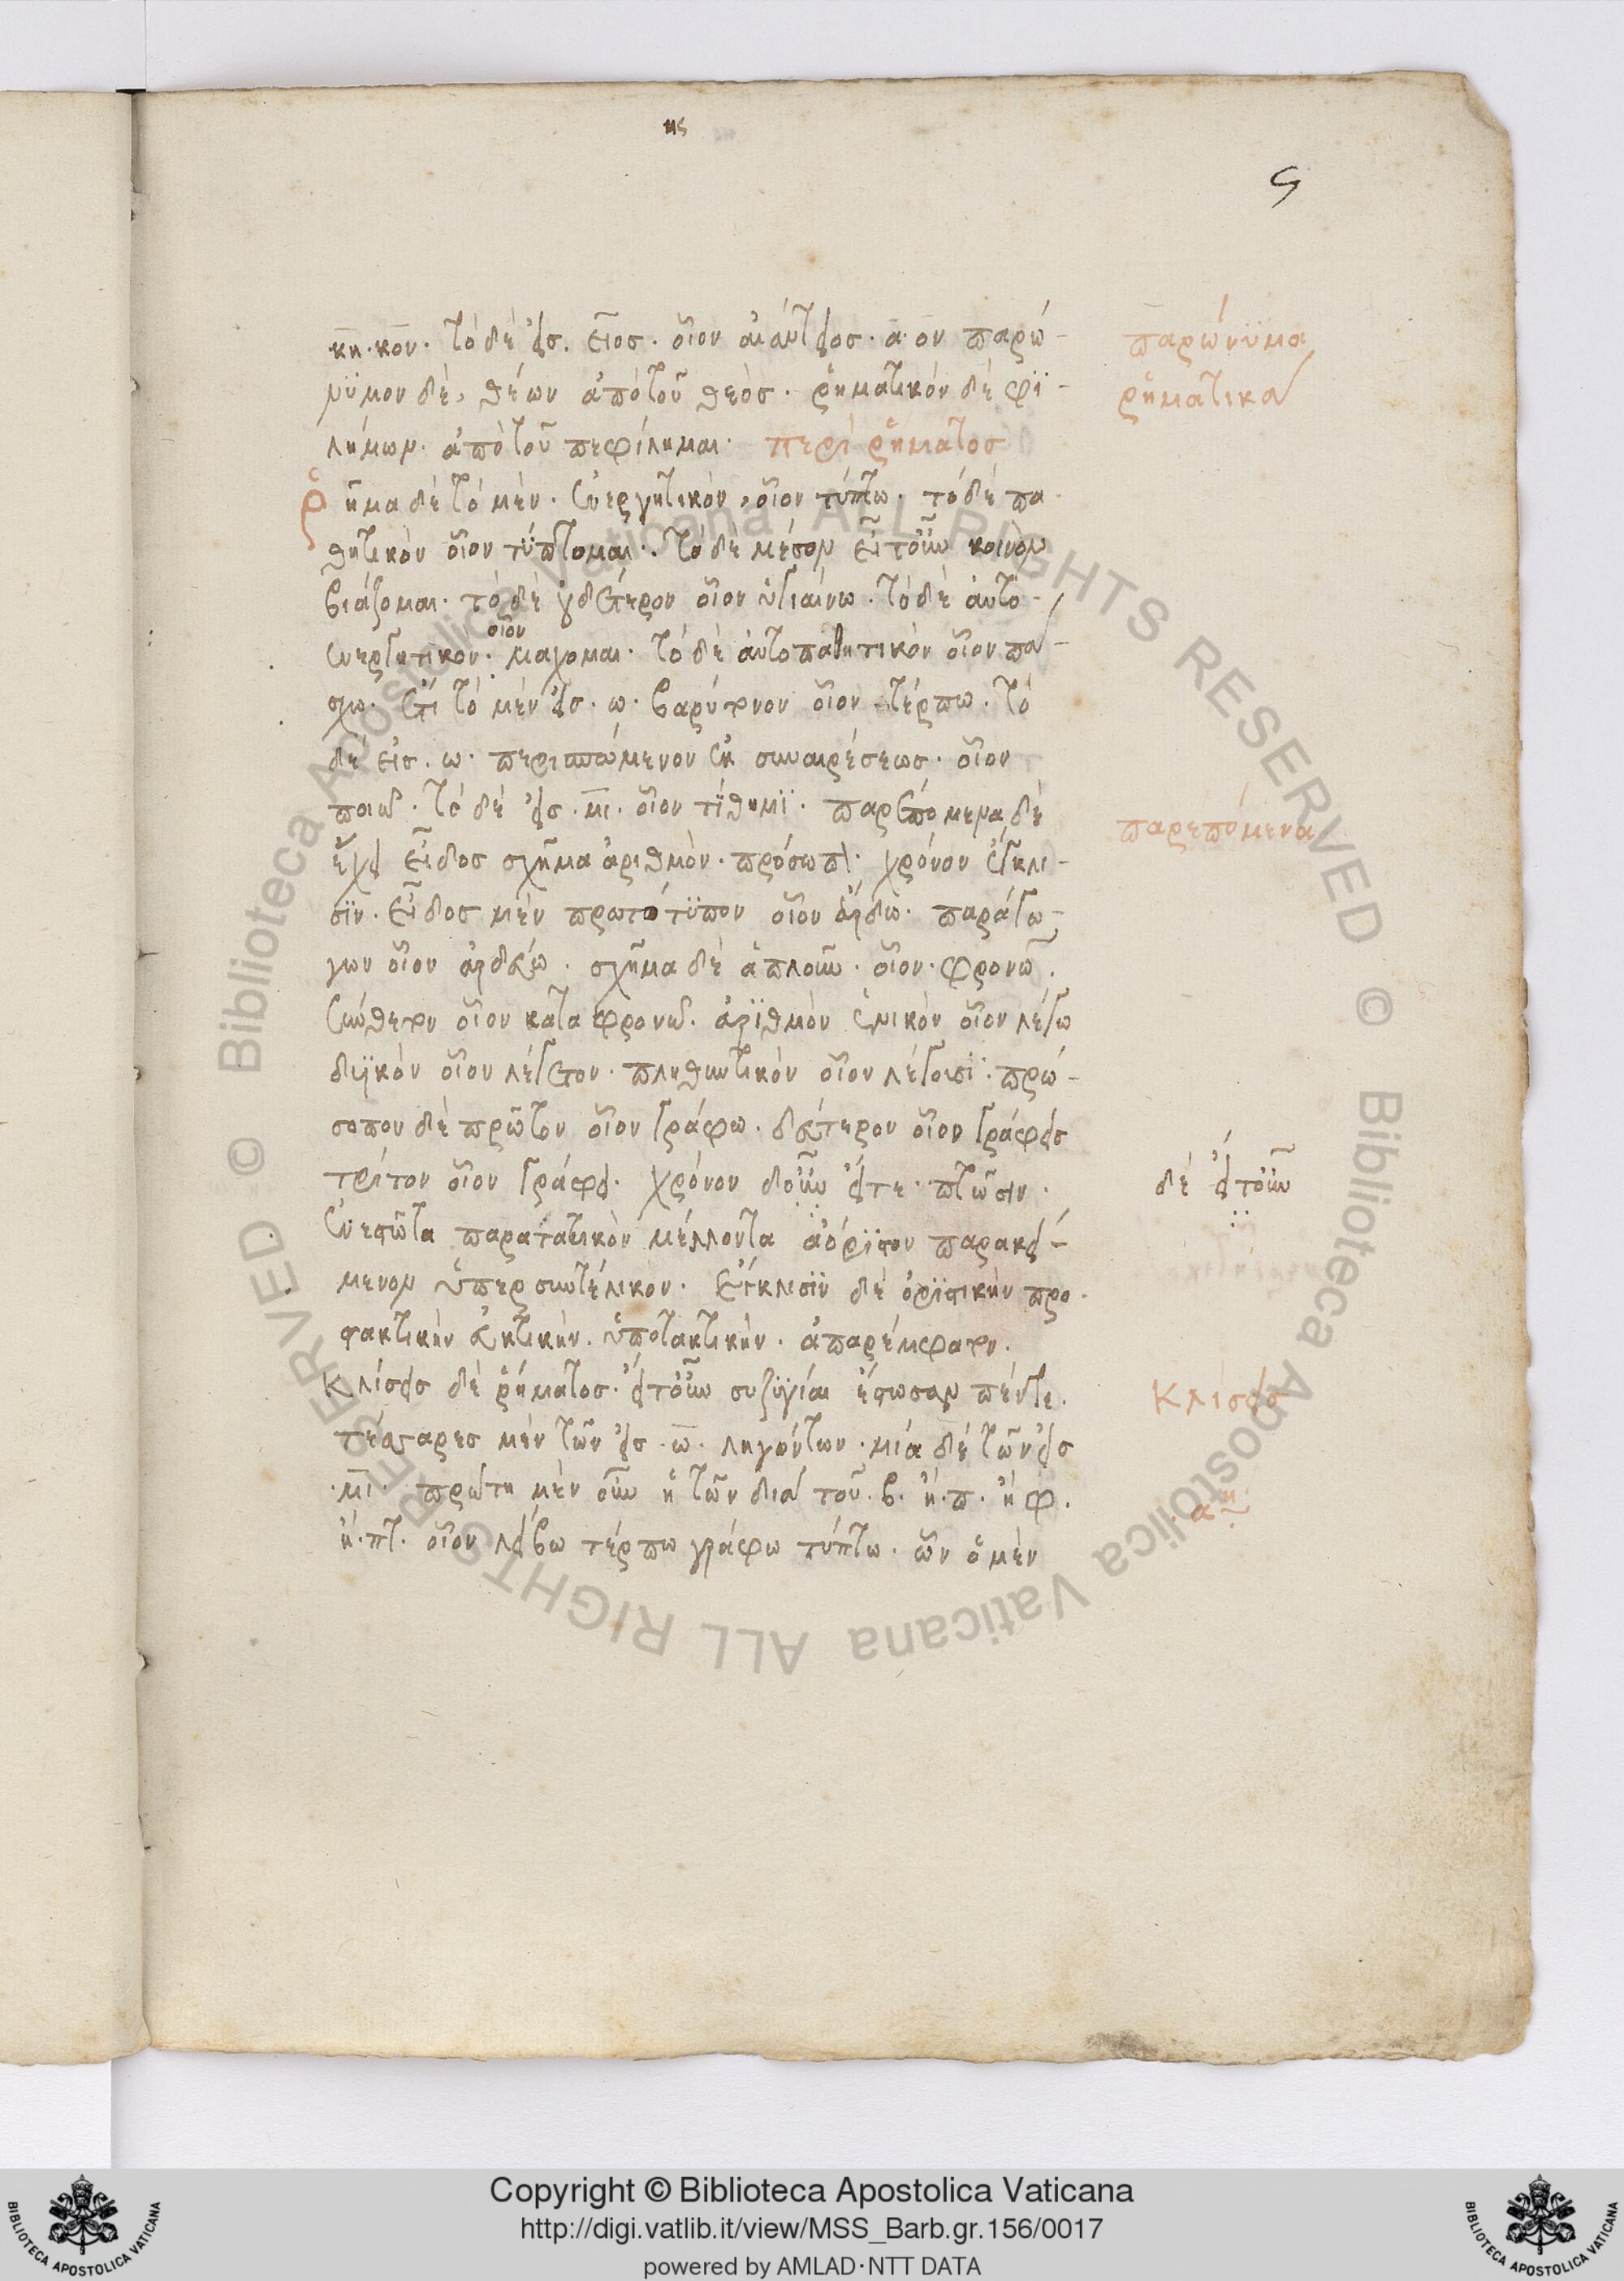 ης
ς
κη· κον· τὸ δὲ εἰς. ειος· οἷον αἰάντειος· α· ον παρώ-
νϋμον δὲ, θέων ἀπὸ τοῦ θεὸς· ῥηματικόν δὲ φϊ-
λήμων· ἀπὸ τοῦ πεφίλημαι· περὶ ῥήματος
ῥῆμα δὲ τὸ μὲν· ἐνεργητικὸν, οἷον τύπτω· τὸ δὲ πα
θητικὸν οἷον τΰπτομαι· τὸ δὲ μέσον εἴτουν κοινὸν
βιάζομαι· τὸ δὲ οὐδέτερον οἷον ὑγιαίνω· τὸ δὲ αὐτο-
ενεργητικὸν· οἷον μάχομαι· τὸ δὲ αὐτοπαθητικὸν οἷον πά-
σχω· ἔτι τὸ μὲν εἰς· ω· βαρύτονον οἷον τέρπω· τὸ
δὲ εἰς· ω· περισπώμενον ἐκ συναιρέσεως· οἷον
ποιῶ· τὸ δὲ εἰς· μι· οἷον τίθημϊ· παρεπόμενα δὲ
ἔχει εἶδος σχῆμα ἀριθμὸν· πρόσωπον· χρόνον ἔγκλι-
σϊν· εἶδος μὲν πρωτότϋπον οἷον ἄρδω· παράγω-
γον οἷον ἀρδεύω· σχῆμα δὲ ἁπλοῦν· οἷον· φρονῶ·
σύνθετον οἷον καταφρονῶ· ἀρϊθμὸν ἑνικὸν οἷον λέγω
δυϊκὸν οἷον λέγετον· πληθυντικὸν οἷον λέγουσϊ· πρώ-
σοπον δὲ πρῶτον οἷον γράφω· δεύτερον οἷον γράφεις
τρίτον οἷον γράφει· χρόνον δοῦν εἴτε· πτῶσιν·
ἐνεστῶτα παρατατικὸν μέλλοντα ἀόρϊστον παρακεί-
μενον ὑπερσυντέλικον· ἔγκλισϊν δὲ ὁρϊστικὴν προ
στακτικὴν εὐκτικὴν· ὑποτακτικὴν· ἀπαρέμφατον·
κλίσεις δὲ ῥήματος· εἴτουν συζϋγίαι ἔστωσαν πέντε·
τέσσαρες μὲν τῶν εἰς· ω· ληγόντων· μία δὲ τῶν εἰς
·μι· πρώτη μὲν οὖν ἡ τῶν διὰ τοῦ· β· ἢ· π· ἢ φ·
ἢ· πτ· οἷον λείβω τέρπω γράφω τύπτω· ὧν ὁ μὲν
παρώνϋμα
ῥηματικὰ
παρεπόμενα
δὲ εἴτουν
κλίσεις
αη
Copyright © Biblioteca Apostolica Vaticana
http://digi.vatlib.it/view/MSS_Barb.gr.156/0017
powered by AMLAD·NTT DATA
BIBLIOTECA APOSTOLICA VATICANA
BIBLIOTECA APOSTOLICA VATICANA
© Biblioteca Apostolica Vaticana ALL RIGHTS RESERVED © Biblioteca Apostolica Vaticana ALL RIGHTS RESERVED